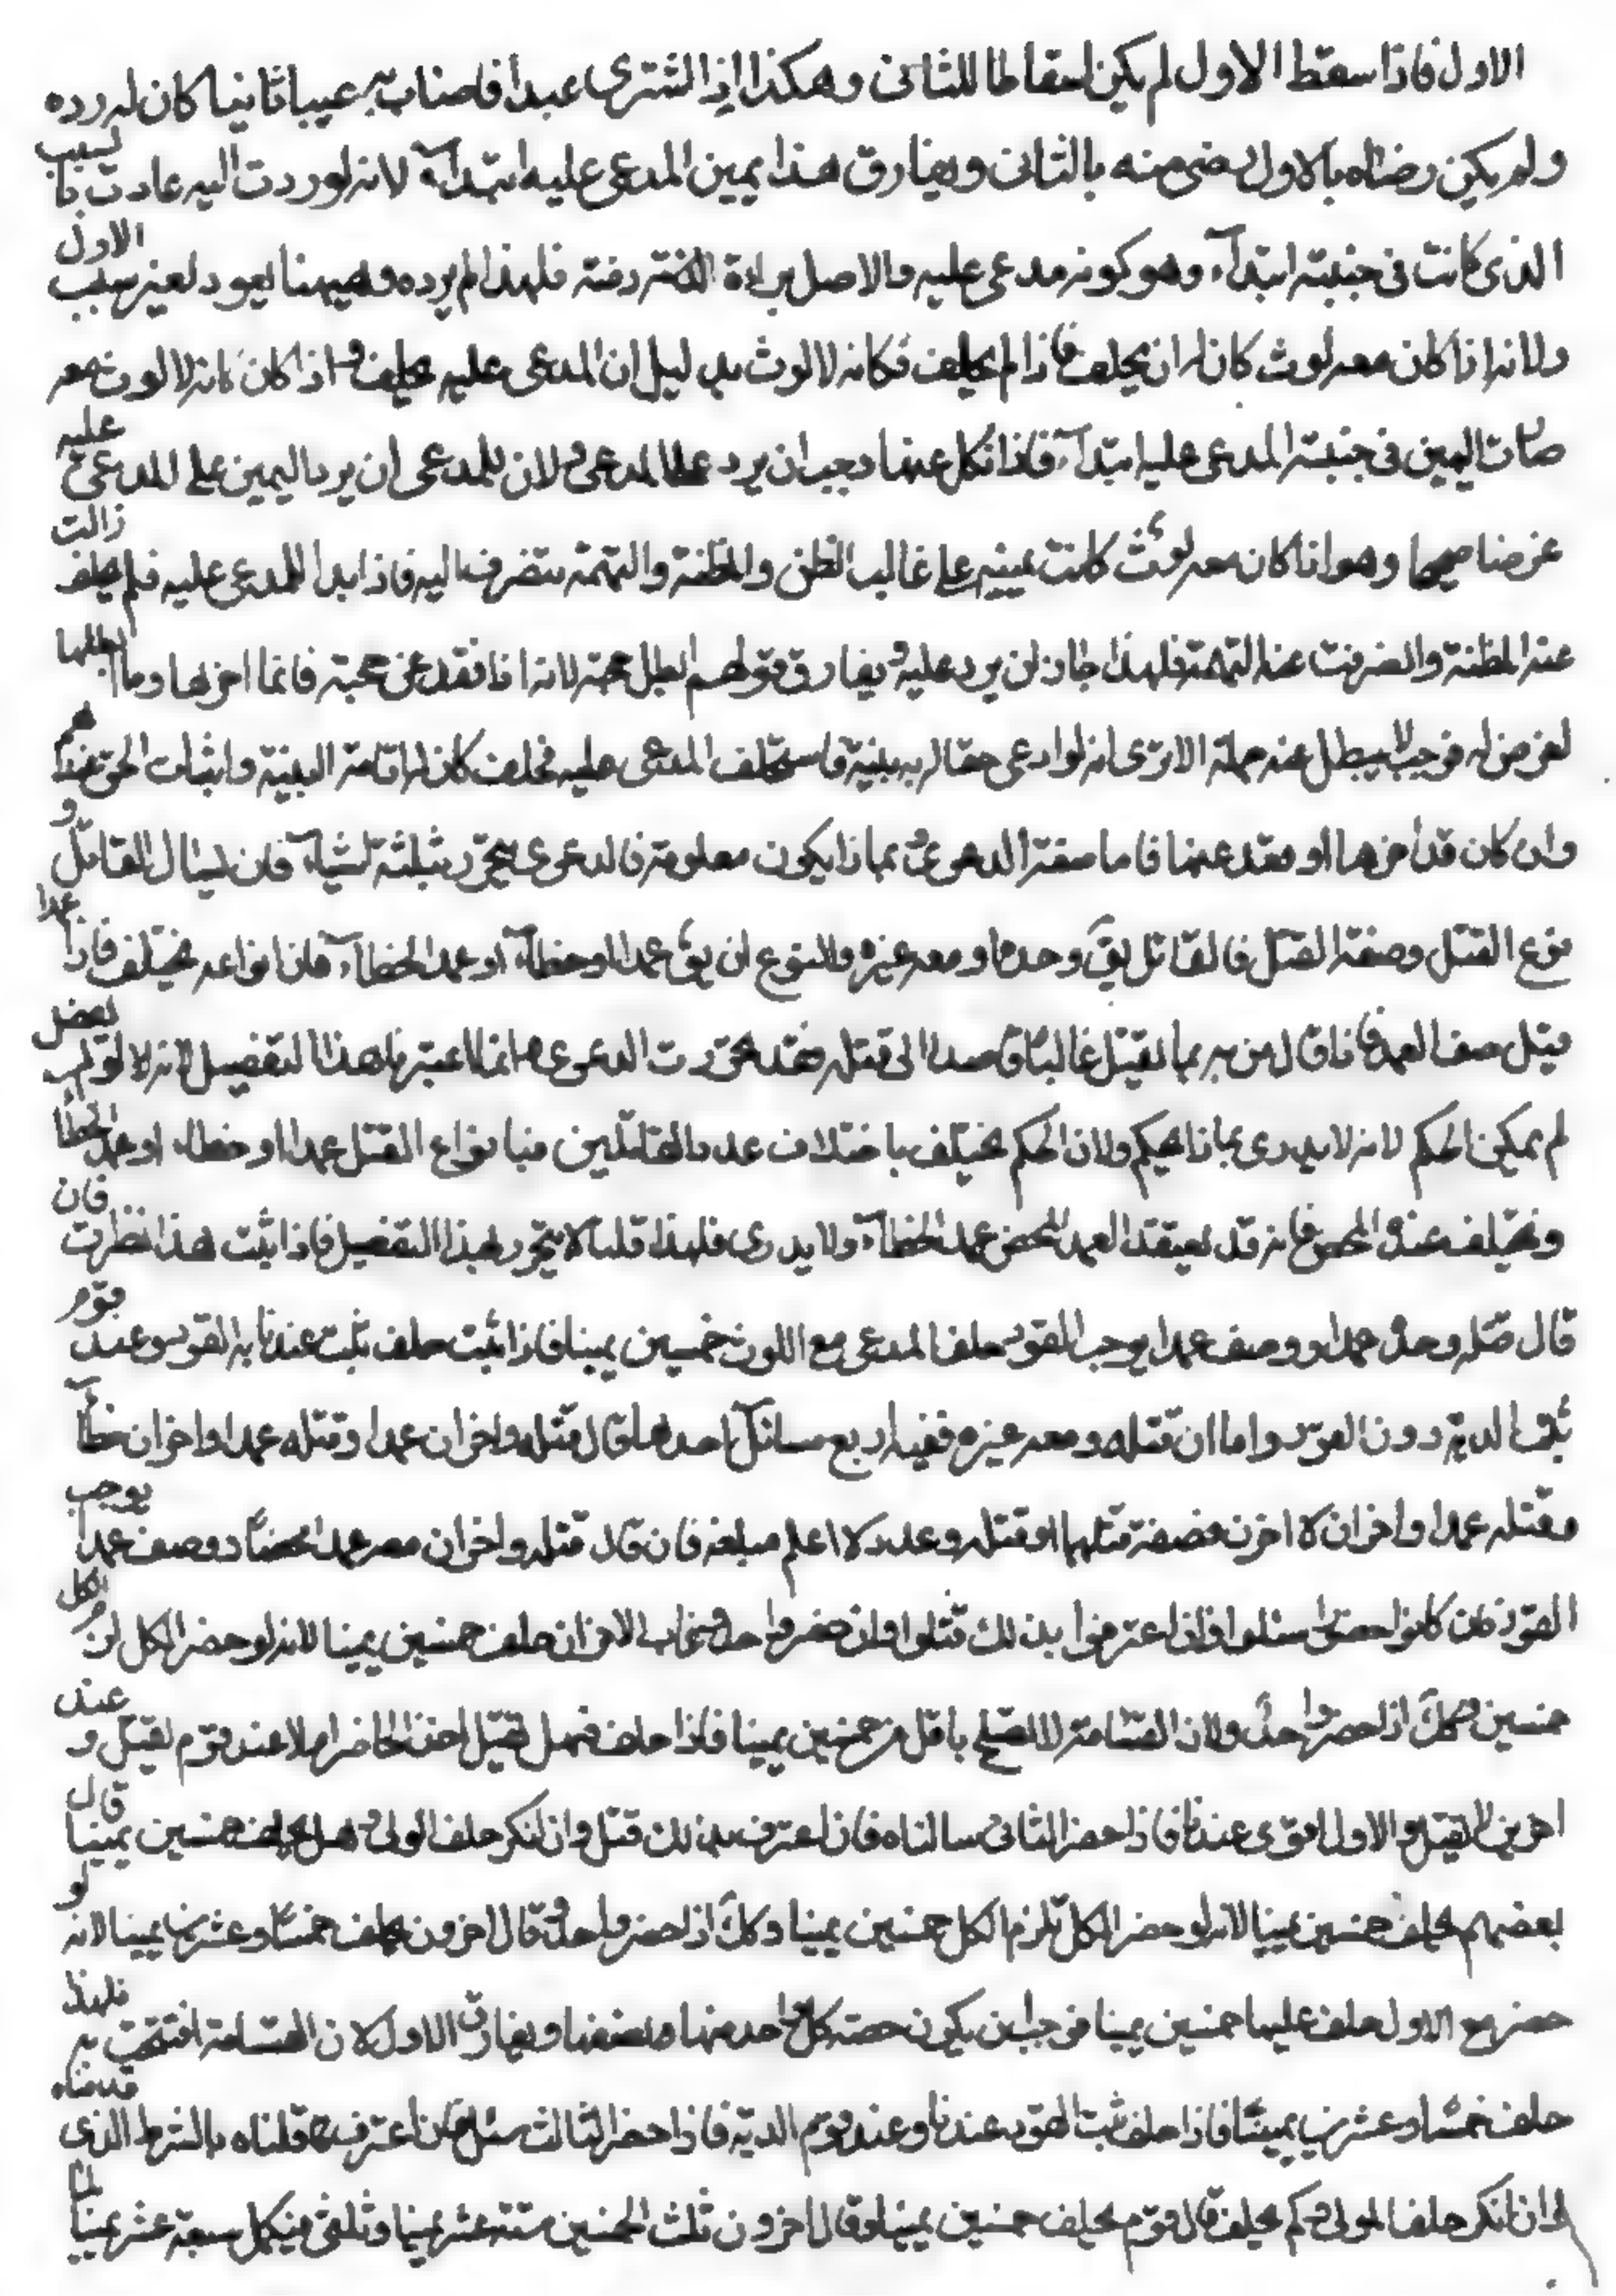 الاول فاذا سقط الاول لم يكن اسقاطا للثانى وهكذا اذا اشترى عبدا فاصاب به عيبا ثانيا كان له رده
ولم يكن رضاه بالاول رضى منه بالثانى ويفارق هذا يمين المدعى عليه ابتدآء لانه لو ردت اليه عادت بالسبب
الذى كانت فى جنبته ابتدآء وهو كونه مدعى عليه والاصل براءة ذمته فلهذا لم يرده وههنا يعود لغير سبب الاول
ولانه اذا كان معه لوث كان له ان يحلف فاذا لم يحلف فكانه لا لوث بدليل ان المدعى عليه يحلف واذا كان كانه لا لوث معه
صارت اليمين فى جنبته المدعى عليه ابتدآء فاذا نكل عنها وجب ان يرد على المدعى ولان للمدعى ان يرد اليمين على المدعى عليه
غرضا صحيحا وهو اذا كان معه لوث كانت يمينه على غالب الظن والمظنة والتهمة تنصرف اليه فاذا بدا للمدعى عليه فلم يحلف زالت
عنه المظنة وانصرفت عنه التهمة فلهذا جاز ان يرد عليه ويفارق قولهم ابطل حجته لانه اذا قعد عن حجته فانما اخرها وما ابطلها
لغرض له فوجب الا يبطل عنه جملة الا ترى انه لو ادعى حقا له به بينة فاستحلف المدعى عليه فحلف كان له اقامة البينة واثبات الحق هذا
وان كان قد اخرها او قعد عنها فاما صفة الدعوى بماذا يكون معلومة فالدعوى يتحرر بثلثة اشيآء فان يسال القاتل و
نوع القتل وصفة القتل فالقاتل يق وحده او معه غيره والنوع ان يق عمدا او خطآء او عمد الخطآء فان انواعه يختلف فاذا عمدا
قيل صف العمد فاذا قال ضربه بما يقتل غالبا قاصدا الى قتله فقد تحررت الدعوى وانما اعتبرنا هذا التفصيل لانه لا لو بعض
لم يمكن الحكم لانه لا يدرى بماذا يحكم ولان الحكم يختلف باختلاف عدد القاتلين وبانواع القتل عمدا او خطاء او عمد الخطأ
ويختلف عنده المحض فانه قد يعتقد العمد المحض عمد الخطآء ولا يدرى فلهذا قلنا لا يتحرر بهذا التفصيل فاذا ثبت هذا نظرت فان
قال قتله وحده عمدا ووصف عمدا يوجب القود حلف المدعى مع اللوث خمسين يمينا فاذا ثبت حلف ثبت عندنا به القود وعند قوم
يثبت الدية دون القود واما ان قتله ومعه غيره ففيه اربع مسائل احدها قال قتله واخران عمدا وقتله عمدا واخران خطآ
وقتله عمدا واخران لا اعرف صفة قتلهما او قتله وعدد لا اعلم مبلغه فان قال قتله واخران معه عمدا محضا ووصف عمدا يوجب
القود فان كانوا حضورا سئلوا فان اعترفوا بذلك قتلوا وان حضر واحد وغاب الاخران حلف خمسين يمينا لانه لو حضر الكل
خمسين وكك اذا حضر واحد ولان القسامة لا تصح باقل من خمسين يمينا فاذا حلف فهل يقتل هذا الحاضر ام لا عند قوم يقتل و عند
اخرين لا يقتل والاول اقوى عندنا فاذا حضر الثانى سالناه فان اعترف بذلك قتل وان انكر حلف الولى وهل يحلف خمسين يمينا قال
بعضهم يحلف خمسين يمينا لانه لو حضر الكل تلزم الكل خمسين يمينا وكك اذا حضر واحد وقال اخرون يحلف خمسا وعشرين يمينا لانه لو
حضر مع الاول حلف عليهما خمسين يمينا فوجب ان يكون حصة كل واحد منهما نصفها ويفارق الاول لان القسامة افتتحت به فلهذا
حلف خمسا وعشرين يمينا فاذا حلف ثبت القود عندنا وعند قوم الدية فاذا حضر الثالث سئل فان اعترف به قتلناه بالشرط الذى قدمناه
وان انكر حلف المولى وكم يحلف قال قوم يحلف خمسين يمينا وقال اخرون ثلث الخمسين ستة عشر يمينا وثلثى فيكمل سبعة عشر يمينا لما